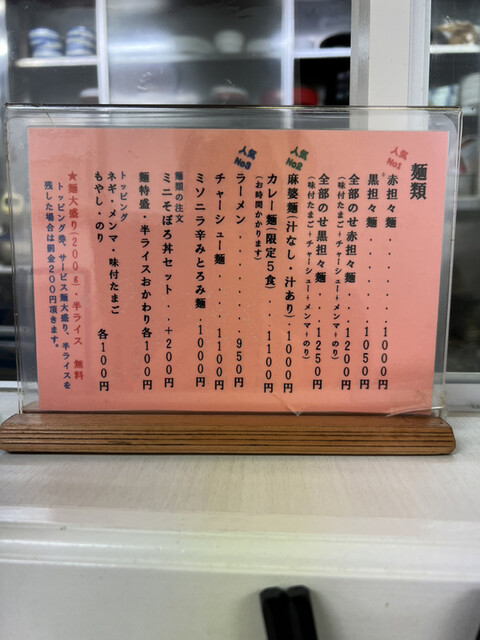 麺類
人気No1
赤担々麺・・・・・・・1000円
黒担々麺・・・・・・・1050円
全部のせ赤担々麺・・・1200円
(味付たまご+チャーシュー+メンマ+のり)
全部のせ黒担々麺・・・1250円
(味付たまご+チャーシュー+メンマ+のり)
人気No2
麻婆麺(汁なし・汁あり)1000円
カレー麺(限定5食)・・・1100円
(お時間かかります)
人気No3
ラーメン・・・・・・・950円
チャーシュー麺・・・・1100円
ミソニラ辛みとろみ麺・1000円
麺類の注文
ミニそぼろ丼セット・・・+200円
麺特盛・半ライスおかわり各100円
トッピング
ネギ・メンマ・味付たまご
もやし・のり 各100円
★麺大盛り(200g)・半ライス 無料
トッピング券、サービス麺大盛り、半ライスを
残した場合は罰金200円頂きます。